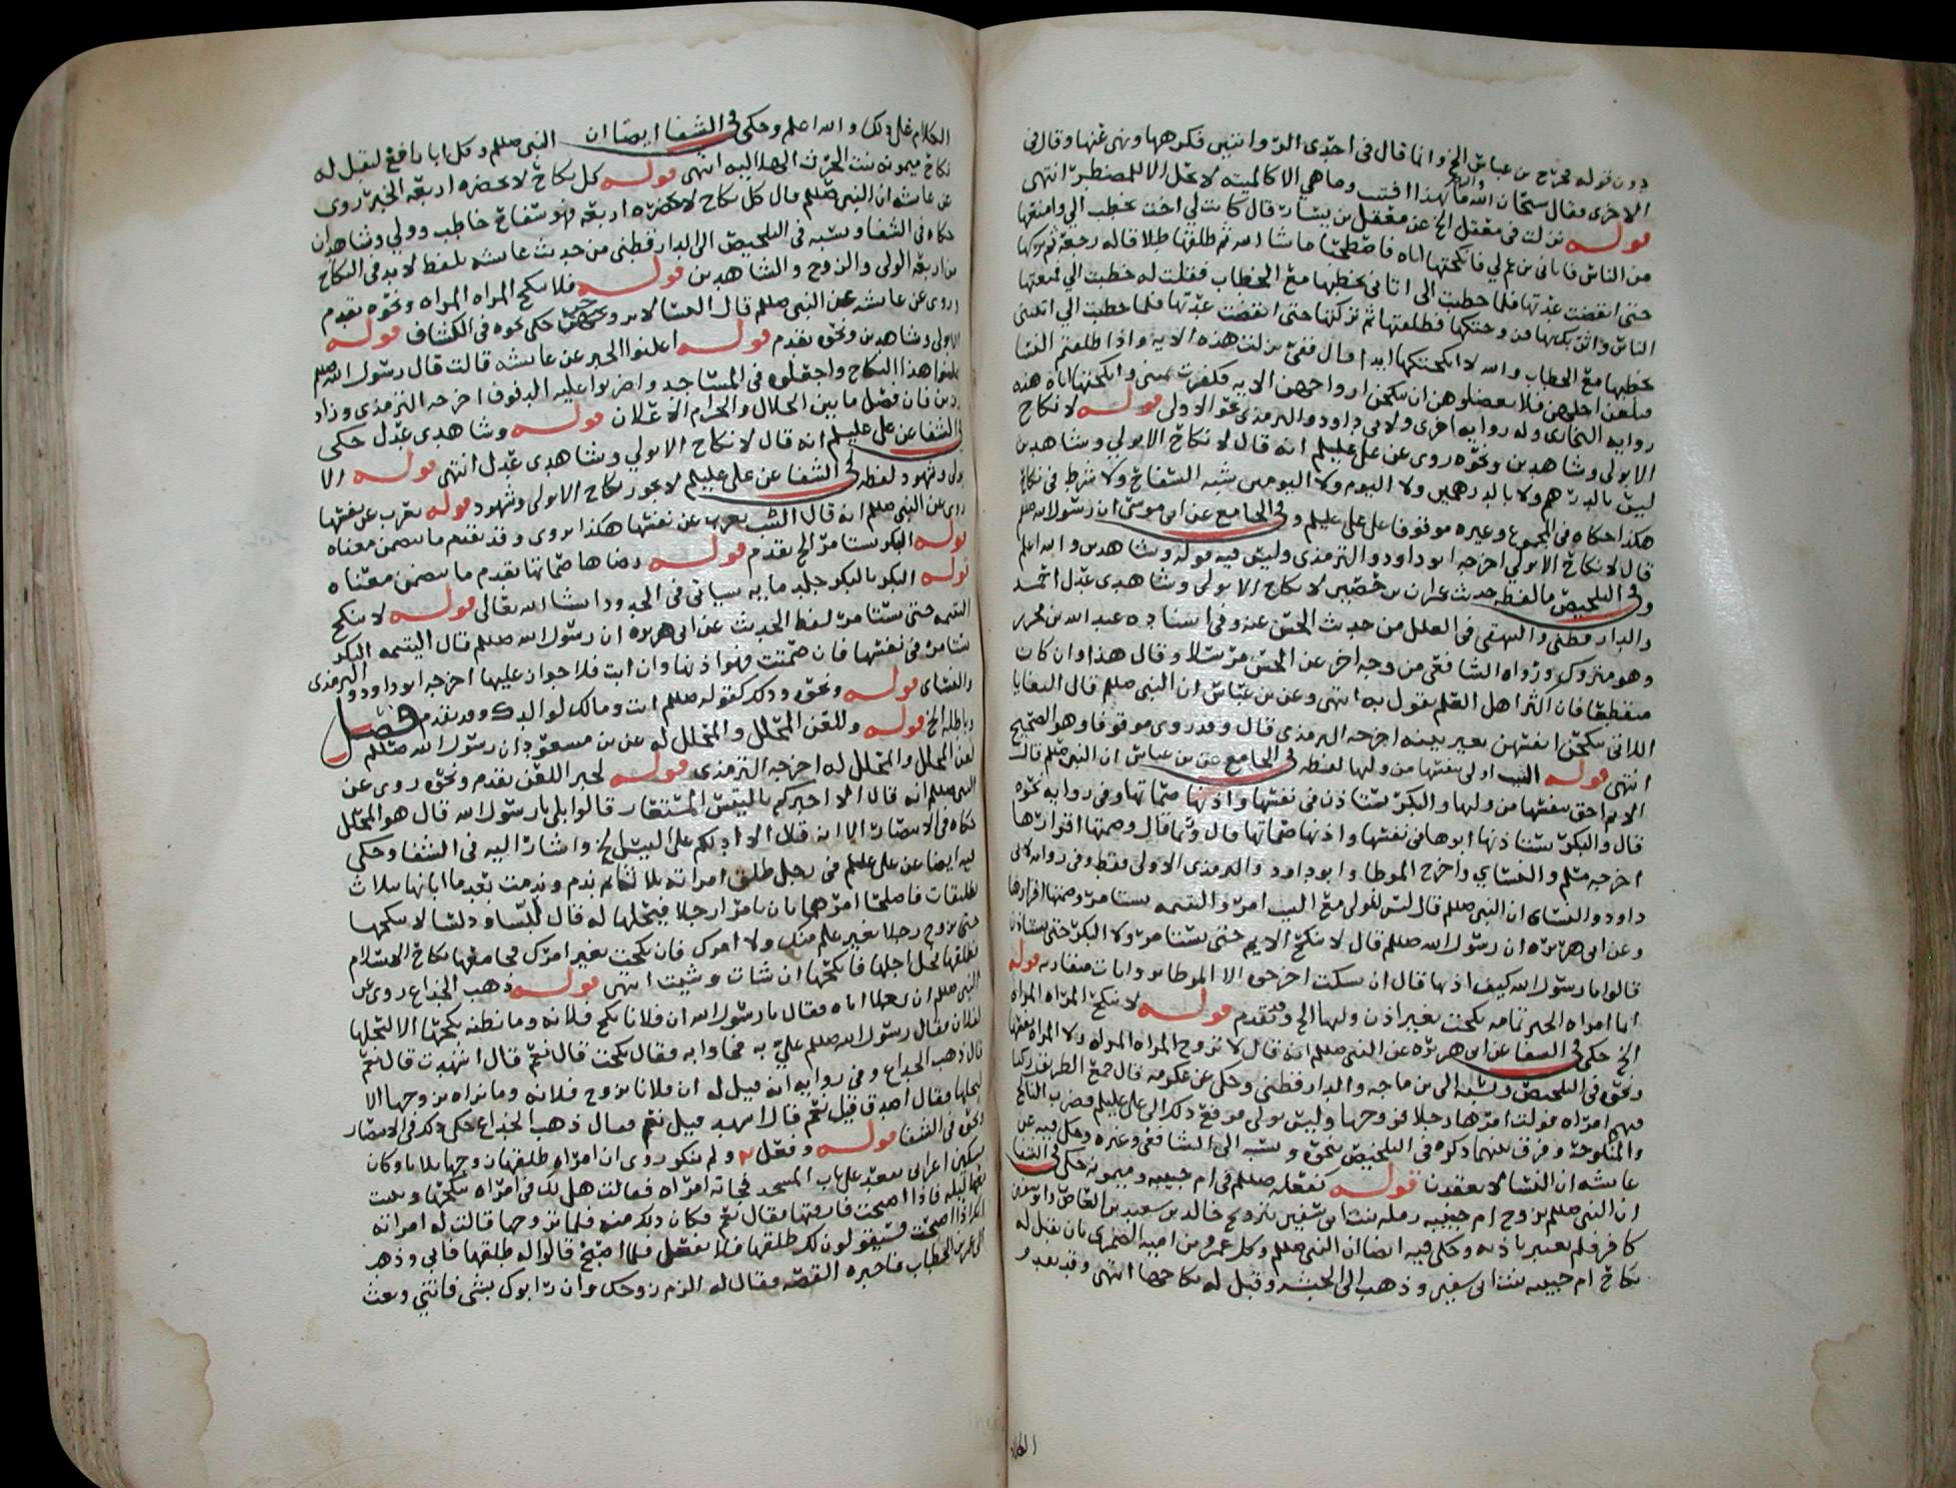 دون قوله محتج بن عباس الخ وانما قال في احدى الروايتين فكرهها ونهى عنها وقال في
الاخرى فقال سبحان الله ما بهذا افتيت وما هي الا كالميته لا تحل الا للمضطر انتهى
قوله نزلت في معقل الخ عن معقل بن يسار قال كانت لي اخت تخطب الي وامنعها
من الناس فاتاني بن عم لي فانكحتها اياه فاصطحبا ما شا الله ثم طلقها طلاقا له رجعة ثم تركها
حتى انقضت عدتها فلما خطبت الى اتاني يخطبها مع الخطاب فقلت له خطبت الي فمنعتها
الناس واثرتك بها فزوجتكها فطلقتها ثم تركتها حتى انقضت عدتها فلما خطبت الي اتيتني
تخطبها مع الخطاب والله لا انكحتكها ابدا قال ففي نزلت هذه الايه واذا طلقتم النسا
فبلغن اجلهن فلا تعضلوهن ان ينكحن ازواجهن الايه فكفرت يميني وانكحتها اياه هذه
رواية البخاري وله رواية اخرى ولابي داود والترمذي نحو الاولى قوله لا نكاح
الا بولي وشاهدين ونحوه روى عن علي عليلم انه قال لا نكاح الا بولي وشاهدين
ليس بالدرهم ولا بالدرهمين ولا اليوم ولا اليومين شبه السفاح ولا شرط في نكاح
هكذا حكاه في المجموع وغيره موقوفا على علي عليلم وفي الجامع عن ابي موسى ان رسول الله صللم
قال لا نكاح الا بولي اخرجه ابو داود والترمذي وليس فيه قوله وشاهدين والله اعلم
وفي التلخيص ما لفظه حديث عمران بن حصين لا نكاح الا بولي وشاهدي عدل احمد
والدارقطني والبيهقي في العلل من حديث الحسن عنه وفي اسناده عبد الله بن محرر
وهو متروك ورواه الشافعي من وجه اخر عن الحسن مرسلا وقال هذا وان كان
منقطعا فان اكثر اهل العلم يقول به انتهى وعن بن عباس ان النبي صللم قال البغايا
اللاتي ينكحن انفسهن بغير بينه اخرجه الترمذي قال وقد روى موقوفا وهو الصحيح
انتهى قوله الثيب اولى بنفسها من وليها لفظه في الجامع عن بن عباس ان النبي صللم قال
الايم احق بنفسها من وليها والبكر تستاذن في نفسها واذنها صماتها وفي رواية نحوه
قال والبكر يستاذنها ابوها في نفسها واذنها صماتها قال وربما قال وصمتها اقرارها
اخرجه مسلم والنسائي واخرج الموطا وابو داود والترمذي الاولى فقط وفي رواية لابي
داود والنسائي ان النبي صللم قال ليس للولي مع الثيب امر واليتيمه تستامر وصمتها اقرارها
وعن ابي هريره ان رسول الله صللم قال لا تنكح الايم حتى تستامر ولا البكر حتى تستاذن
قالوا يا رسول الله كيف اذنها قال ان تسكت اخرجوه الا الموطا بروايات متقاربه قوله
ايما امراه الخبر تمامه نكحت بغير اذن وليها الخ وقد تقدم قوله لا تنكح المراه المراه
الخ حكى في الشفا عن ابي هريره عن النبي صللم انه قال لا تزوج المراه المراه ولا المراه نفسها
ونحوه في التلخيص ونسبه الى بن ماجه والدارقطني وحكى عن عكرمه قال جمع الطريق ركبا
فيهم امراه فولت امرها رجلا فزوجها وليس بولي فرفع ذلك الى علي عليلم فضرب الناكح
والمنكوحة وفرق بينهما ذكره في التلخيص بنحوه ونسبه الى الشافعي وغيره وحكى فيه عن
عائشه ان النسا لا يعقدن قوله كفعله صللم في ام حبيبه وميمونه حكى في الشفا
ان النبي صللم تزوج ام حبيبه رمله بنت ابي سفين بتزويج خالد بن سعيد بن العاص وابو سفين
كافر فلم يعتبر باذنه وحكى فيه ايضا ان النبي صللم وكل عمرو بن اميه الضمري بان يقبل له
نكاح ام حبيبه بنت ابي سفين وذهب الى الحبشه وقبل له نكاحها انتهى وقد تقدم
الكلام
الكلام على ذلك والله اعلم وحكى في الشفا ايضا ان النبي صللم وكل ابا رافع ليقبل له
نكاح ميمونه بنت الحرث الهلاليه انتهى قوله كل نكاح لا يحضره اربعه الخبر روى
عن عائشه ان النبي صللم قال كل نكاح لا يحضره اربعه فهو سفاح خاطب وولي وشاهدان
حكاه في الشفا ونسبه في التلخيص الى الدارقطني من حديث عائشه بلفظ لا بد في النكاح
من اربعه الولي والزوج والشاهدين قوله فلا تنكح المراه المراه ونحوه تقدم
وروى عن عائشه عن النبي صللم قال النسا لا يزوجن حكى نحوه في الكشاف قوله
الا بولي وشاهدين ونحوه تقدم قوله اعلنوا الخبر عن عائشه قالت قال رسول الله صللم
اعلنوا هذا النكاح واجعلوه في المساجد واضربوا عليه الدفوف اخرجه الترمذي وزاد
رزين فان فصل ما بين الحلال والحرام الاعلان قوله وشاهدي عدل حكى
في الشفا عن علي عليلم انه قال لا نكاح الا بولي وشاهدي عدل انتهى قوله الا
بولي وشهود لفظه في الشفا عن علي عليلم لا يجوز نكاح الا بولي وشهود قوله تعرب عن نفسها
روى عن النبي صللم انه قال الثيب يعرب عن نفسها هكذا يروى وقد تقدم ما يتضمن معناه
قوله البكر تستامر الخ تقدم قوله رضاها صماتها تقدم ما يتضمن معناه
قوله البكر بالبكر جلد مايه سياتي في الحدود انشا الله تعالى قوله لا تنكح
اليتيمه حتى تستامر لفظ الحديث عن ابي هريره ان رسول الله صللم قال اليتيمه البكر
تستامر في نفسها فان صمتت فهو اذنها وان ابت فلا جواز عليها اخرجه ابو داود والترمذي
والنسائي قوله ونحوه وذلك كقوله صللم انت ومالك لوالدك وقد تقدم فصل
وباطله الخ قوله وللعن المحلل والمحلل له عن بن مسعود ان رسول الله صللم
لعن المحلل والمحلل له اخرجه الترمذي قوله لخبر اللعن تقدم ونحوه روى عن
النبي صللم انه قال الا اخبركم بالتيس المستعار قالوا بلى يا رسول الله قال هو المحلل
حكاه في الانتصار الا انه قال الا ادلكم على التيس الخ واشار اليه في الشفا وحكى
فيه ايضا عن علي عليلم في رجل طلق امراته ثلاثا ثم ندم وندمت بعد ما ابانها بثلاث
تطليقات فاصلحا امرهما بان يامر رجلا فيحلها له قال للنسا ودلسا لا ينكحها
حتى تزوج رجلا بغير علم منك ولا امرك فان نكحت بغير امرك فجامعها نكاح الاسلام
فطلقها لحل اجلها فانكحها ان شات وشيت انتهى قوله ذهب الخداع روى عن
النبي صللم ان رجلا اتاه فقال يا رسول الله ان فلانا نكح فلانه وما نظنه نكحها الا ليحلها
لفلان فقال رسول الله صللم علي به فجاوا به فقال نكحت قال نعم قال اشهدت قال نعم
قال ذهب الخداع وفي رواية انه قيل له ان فلانا تزوج فلانه وما نراه تزوجها الا
ليحلها فقال اصدق قيل نعم قال اشهد قيل نعم فقال ذهب الخداع حكى ذلك في الانتصار
ونحوه في الشفا قوله وفعل ولم ينكر روى ان امراه طلقها زوجها ثلاثا وكان
مسكين اعرابي يقعد على باب المسجد فجاته امراه فقالت هل لك في امراه تنكحها وتبيت
معها ليله فاذا اصبحت فارقتها فقال نعم فكان ذلك منه فلما تزوجها قالت له امراته
انك اذا اصبحت فسيقولون لك طلقها فلا تفعل فلما اصبح قالوا له طلقها فابى وذهب
الى عمر بن الخطاب فاخبره القصه فقال له الزم زوجك وان رابوك بشى فاتني وبعث